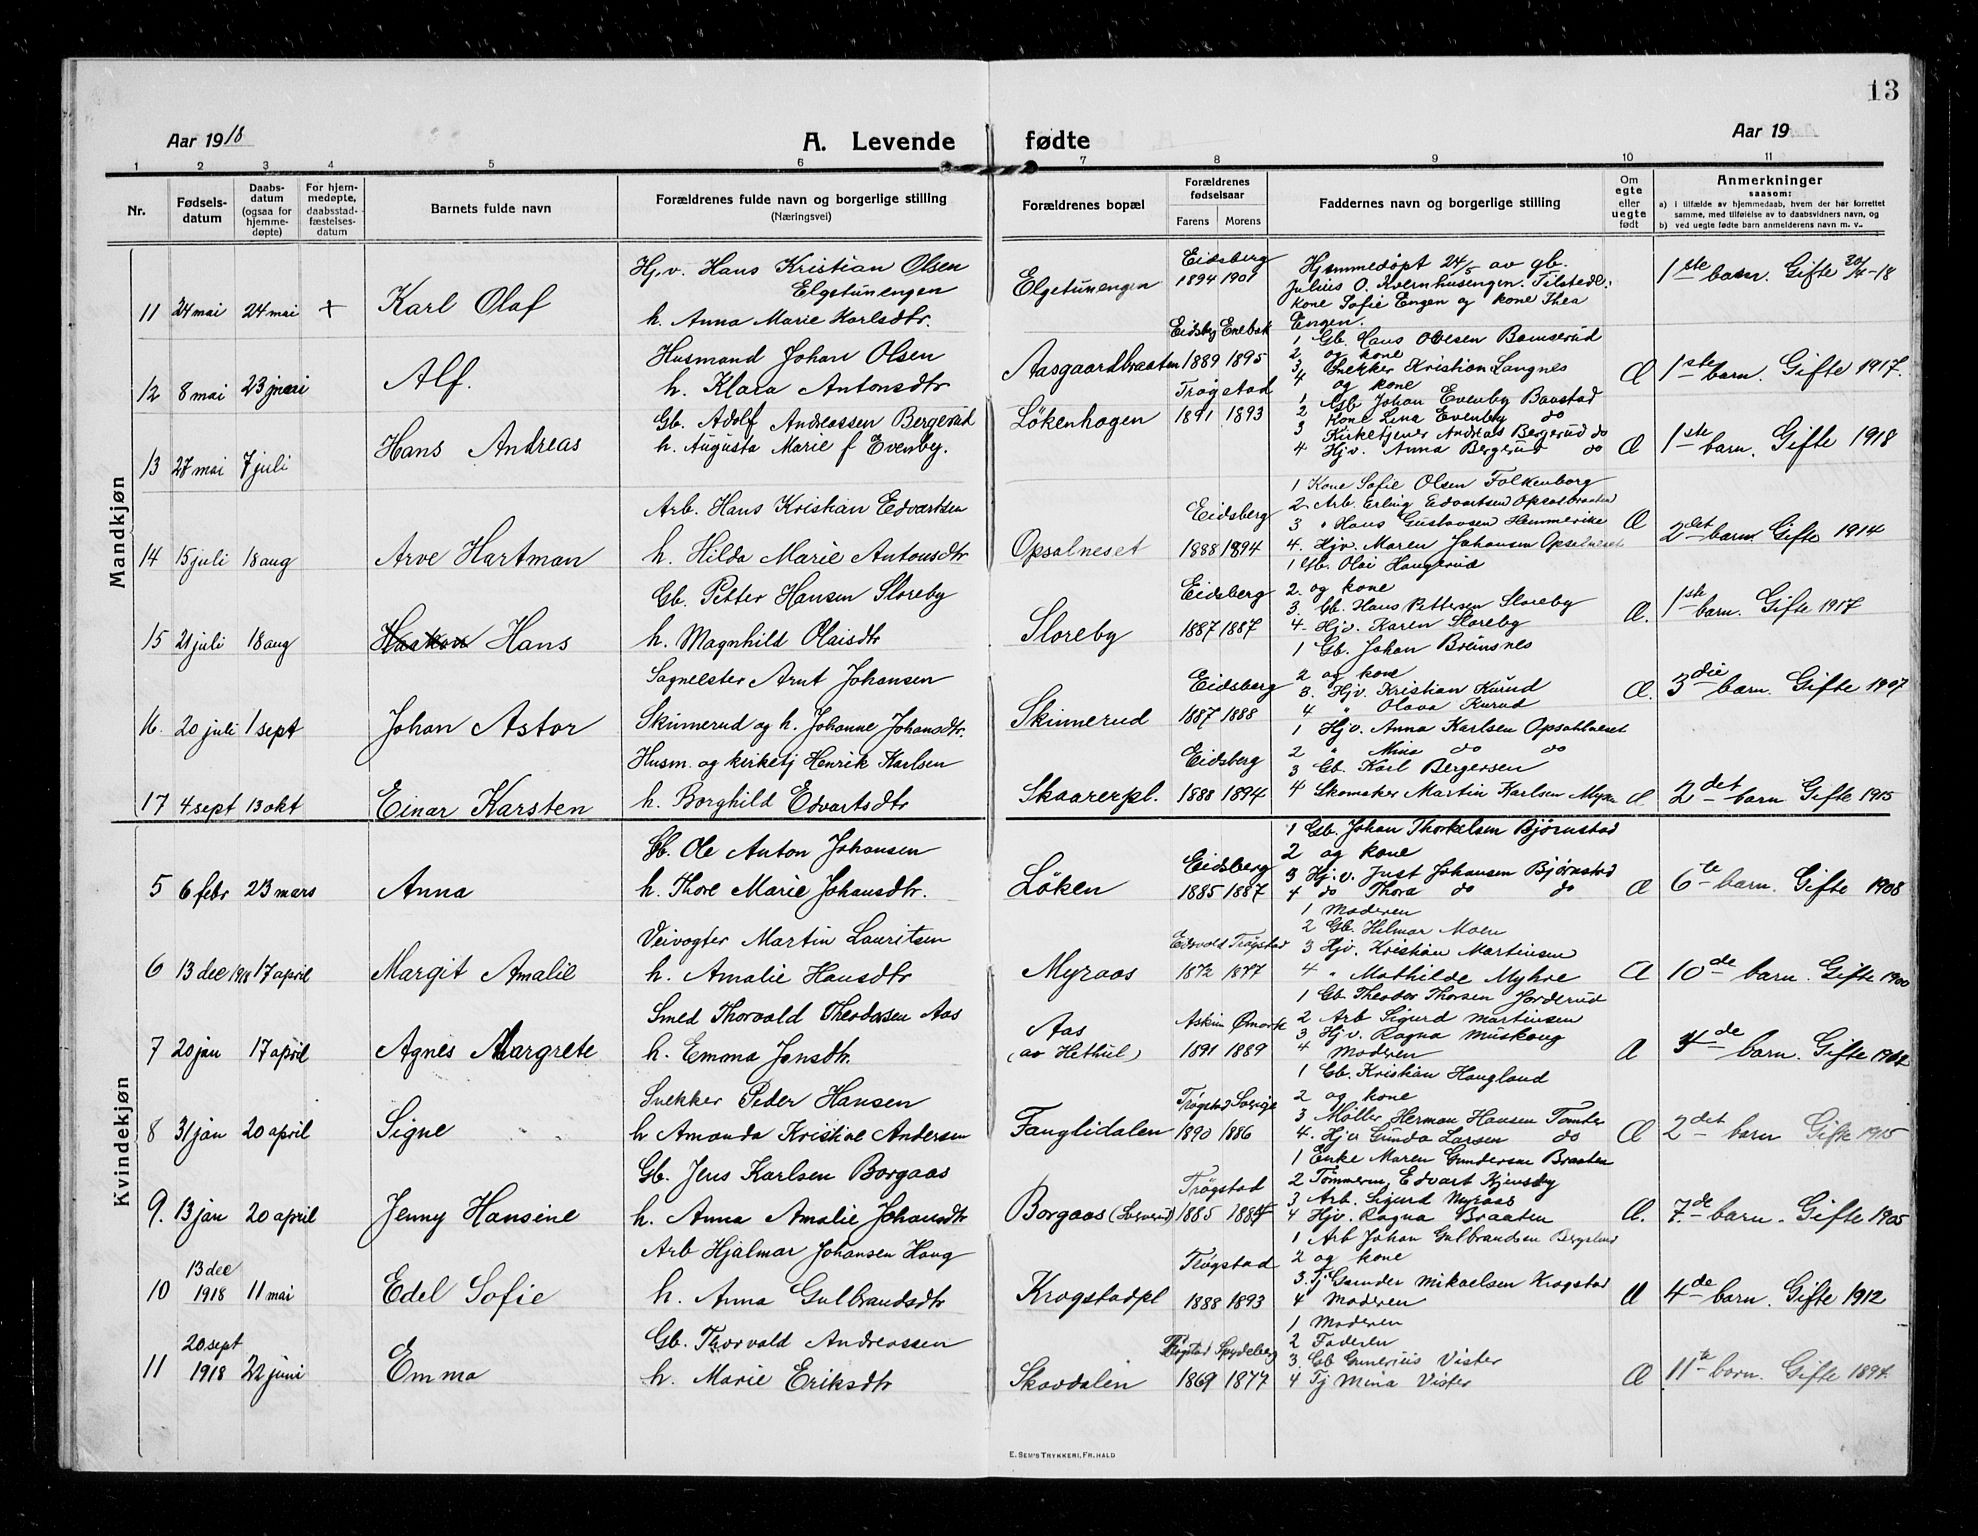 13
Aar 1918
A. Levende fødte
Aar 19
1 2 3 4 5 6 7 8 9 10 11
Nr.
Fødsels-
datum
Daabs-
datum
(ogsaa for
hjemme-
døpte)
For hjem-
medøpte,
daabsstad-
fæstelses-
datum
Barnets fulde navn
Forældrenes fulde navn og borgerlige stilling
(Næringsvei)
Forældrenes bopæl
Forældrenes
fødselsaar
Farens Morens
Faddernes navn og borgerlige stilling
Om
egte
eller
uegte
født
Anmerkninger
saasom:
a) i tilfælde av hjemmedaab, hvem der har forrettet
samme, med tilføielse av to daabsvidners navn, og
b) ved uegte fødte barn anmelderens navn m. v..
Mandkjøn
11 24 mai 24 mai + Karl Olaf
Hj.v. Hans Kristian Olsen
Elgetunengen
h. Anna Marie Karlsdtr.
Elgetunengen
Eidsberg
1894 1901
Hjemmedøpt 24/5 av gb.
Julius O. Kvernhusengen. Tilstede:
kone Sofie Engen og kone Thea
Engen.
1ste barn. Gifte 20/4-18
12 8 mai 23 juni Alf.
Husmand Johan Olsen
h. Klara Antonsdtr
Aasgaardbraaten
Eidsbg Enebak
1889 1895
1 Gb. Hans Olesen Bamserud
2 og kone
3 Snekker Kristian Langnes
4 og kone
Æ 1ste barn. Gifte 1917.
13 27 mai 7 juli Hans Andreas
Gb. Adolf Andreassen Bergerud
h. Augusta Marie f Evenby.
Løkenhagen
Trøgstad
1891 1893
1 Gb Johan Evenby Baastad
2 Kone Lina Evenby do
3 Kirketjener Andreas Bergerud do
4 Hjv. Anna Bergerud do
Æ 1ste barn. Gifte 1918
14 15 juli 18 aug Arve Hartman
Arb. Hans Kristian Edvartsen
h. Hilda Marie Antonsdtr
Opsalneset
Eidsberg
1888 1894
1 Kone Sofie Olsen Folkenborg
2 Arb. Erling Edvartsen Opsalbraaten
3 " Hans Gustavsen Hammerike
4. Hjv. Maren Johansen Opsalneset
Æ 2det barn. Gifte 1914
15 21 juli 18 aug Haakon Hans
Gb. Petter Hansen Sloreby
h. Magnhild Olaisdtr
Sloreby
Eidsberg
1887 1887
1 Gb. Olai Haugerud
2. og kone
3. Gb. Hans Pettersen Sloreby
4. Hjv. Karen Sloreby
Æ. 1ste barn. Gifte 1917
16. 20 juli 1 sept Johan Astor
Sagmester Arnt Johansen
Skinnerud og h. Johanne Johansdtr.
Skinnerud
Eidsberg
1887 1888
1 Gb. Johan Breinsnes
2 og kone
3. Hjv. Kristian Kurud
4 " Olava Kurud
Æ. 3die barn. Gifte 1907
17 4 sept 13 okt Einar Karsten
Husm. og kirketj Henrik Karlsen
h. Borghild Edvartsdtr
Skaarerpl.
Eidsberg
1888 1894
1 Hjv. Anna Karlsen Opsahlneset
2 " Mina do do
3 Gb. Karl Bergersen
4 Skomaker Martin Karlsen
Æ 2det barn Gifte 1915
Kvindekjøn
5 6 febr 23 mars Anna
Gb. Ole Anton Johansen
h. Thore Marie Johansdtr.
Løken
Eidsberg
1885 1887
1 Gb. Johan Thorkelsen Bjørnstad
2 og kone
3 Hj.v. Just Johansen Bjørnstad
4 do Thora do do
Æ 6te barn. Gifte 1908
6 13 dec 1918 17 april Margit Amalie
Veivogter Martin Lauritsen
h. Amalie Hansdtr
Myraas
Eidsvold Trøgstad
1872 1877
1 Moderen
2 Gb. Hilmar Moen
3 Hjv. Kristian Martinsen
4 " Mathilde Myhre
Æ 10de barn. Gifte 1900
7 20 jan 17 april Agnes Margrete
Smed Thorvald Theodorsen Aas
h. Emma Jensdtr.
Aas
(av Hethul)
Askim Ømark
1891 1889
1 Gb Theodor Thorsen Jorderud
2 Arb Sigurd Martinsen
3 Hj.v. Ragna Muskaug
4 Moderen
Æ 4de barn. Gifte
8 31 jan 20 april Signe
Snekker Peder Hansen
h Amanda Kristine Andersen
Fanglidalen
Trøgstad Sverige
1890 1886
1 Gb. Kristian Haugland
2 og kone
3 Møller Herman Hansen Tomter
4. Hjv Gunda Larsen do
Æ 2det barn Gifte 1915
9. 13 jan 20 april Jenny Hansine
Gb. Jens Karlsen Borgaas
h. Anna Amalie Johansdtr
Borgaas
Trøgstad
1885 1884
1 Enke Maren Gundersen Braaten
2 Tømmerm Edvart Kjensby
3 Arb. Sigurd Myraas
4 Hjv. Ragna Braaten
Æ. 7de barn. Gifte 1905
10 13 dec 1918 11 mai Edel Sofie
Arb Hjalmar Johansen Haug
h. Anna Gulbrandsdtr
Krogstadpl
Trøgstad
1888 1893
1 Arb Johan Gulbrandsen
2 og kone
3. Tj Gunder Mikaelsen Krogstad
4 Moderen
Æ 4de barn. Gifte 1912
11 20 sept 1918 22 juni Emma
Gb. Thorvald Andreassen
h. Marie Eriksdtr
Skavdalen
Trøgstad Spydeberg
1869 1877
1 Moderen
2 Faderen
3. Gb Gunerius Vister
4 Tj Mina Vister
Æ 11te barn. Gifte 1897.
E. SEM'S TRYKKERI, FR.HALD